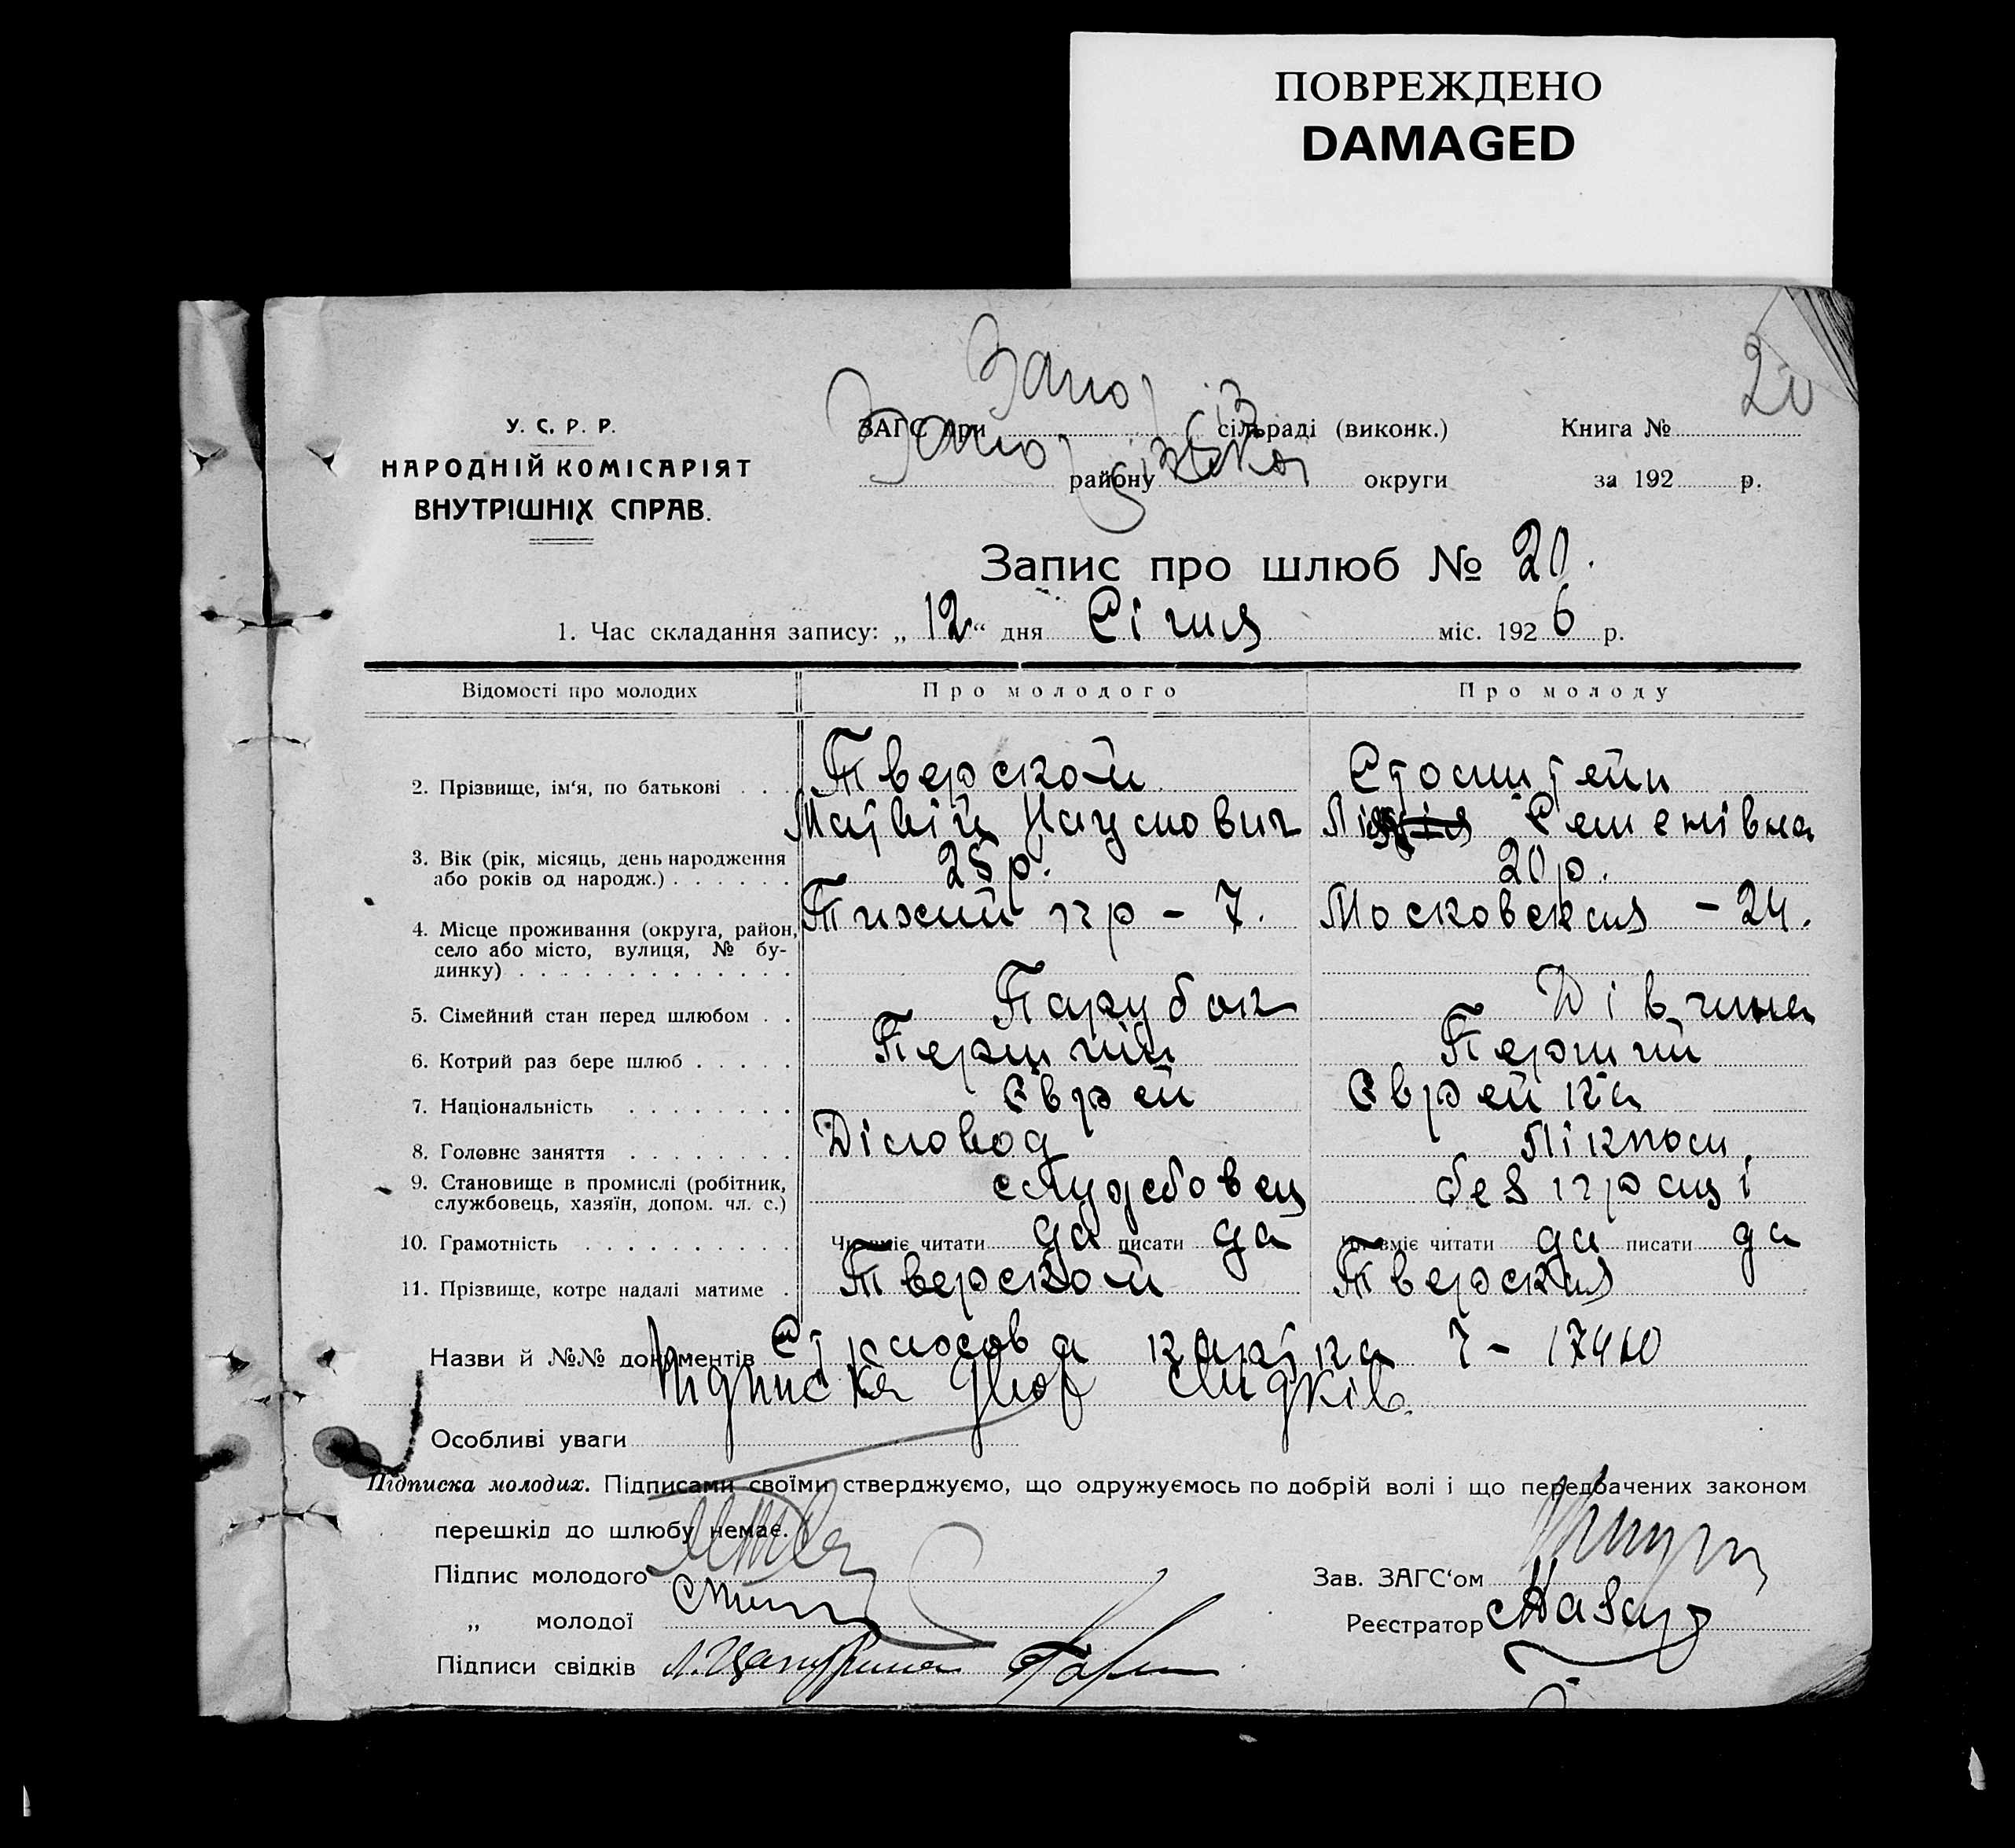 ПОВРЕЖДЕНО
DAMAGED
20
У. С. Р. Р.
НАРОДНІЙ КОМІСАРІЯТ
ВНУТРІШНІХ СПРАВ.
ЗАГС при Запоріз сільраді (виконк.) Книга №
району округи за 192 р.
Запис про шлюб № 20.
1. Час складання запису: „ 12 “ дня Січня міс. 1926 р.
Відомості про молодих Про молодого Про молоду
2. Прізвище, ім‘я, по батькові Тверской
Матвій Наумович Семенівна
3. Вік (рік, місяць, день народження або років од народж.) 25 р. 20 р.
4. Місце проживання (округа, район, село або місто, вулиця, № будинку) Тихий пр - 7. Московская - 24.
5. Сімейний стан перед шлюбом Парубок Дівчина
6. Котрий раз бере шлюб Перший Перший
7. Національність Єврей Єврейка
8. Головне заняття Діловод Лікпом
9. Становище в промислі (робітник, службовець, хазяїн, допом. чл. с.) служебовец без праці
10. Грамотність Чи вміє читати да писати да Чи вміє читати да писати да
11. Прізвище, котре надалі матиме Тверской Тверская
Назви й №№ документів картка
Підписка двох свідків.
Особливі уваги
Підписка молодих. Підписами своїми стверджуємо, що одружуємось по добрій волі і що передбачених законом
перешкід до шлюбу немає.
Підпис молодого Зав. ЗАГС‘ом
„ молодої Реєстратор
Підписи свідків